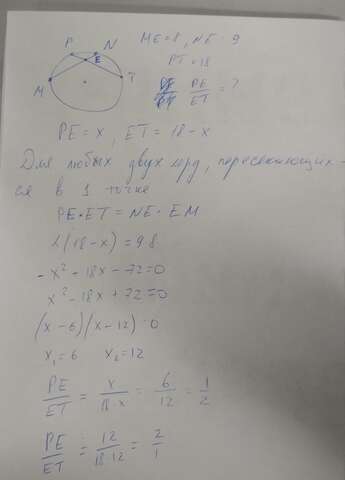 ME=8, NE=9
P N
PT=18
E
PE/ET = ?
M T
PE=x, ET=18-x
Для любых двух хорд, пересекающих-
ся в 1 точке
PE•ET=NE•EM
x(18-x)=9·8
-x²-18x-72=0
x²-18x+72=0
(x-6)(x-12)=0
x₁=6 x₂=12
PE/ET = x/18-x = 6/12 = 1/2
PE/ET = 12/18-12 = 2/1